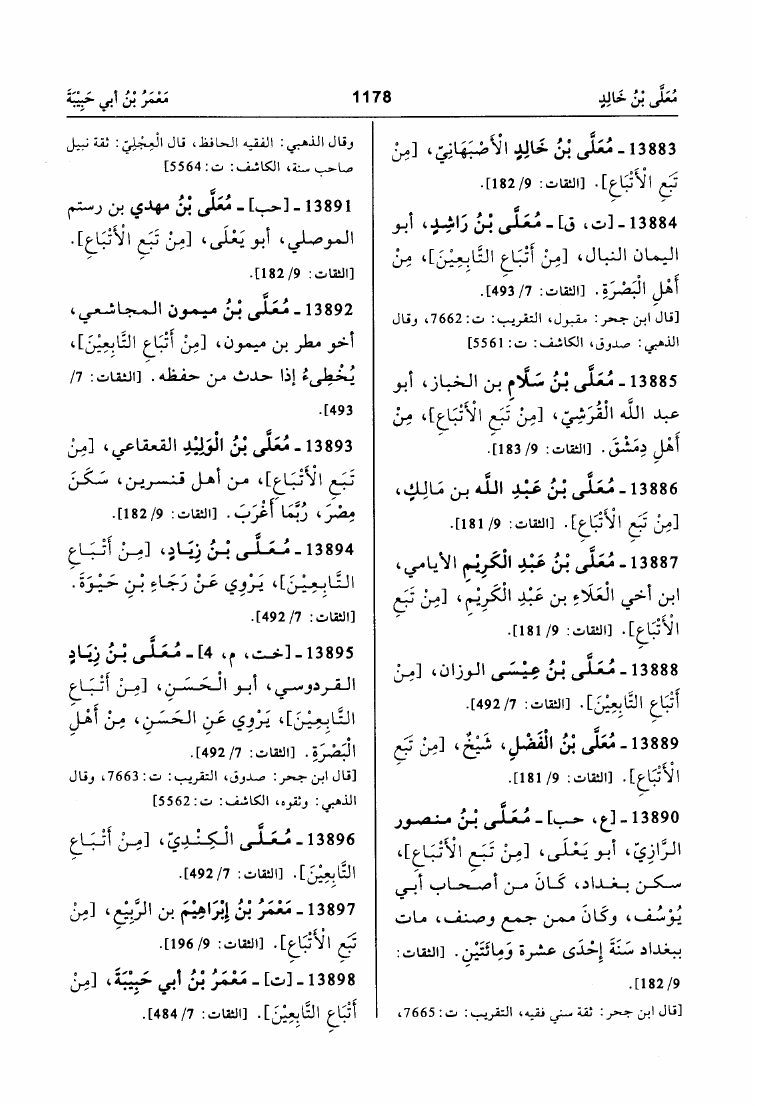 مُعَلَّى بْنُ خَالِدٍ
1178
مَعْمَرُ بْنُ أَبي حَبِيْبَةَ
13883 - مُعَلَّى بْنُ خَالِدٍ الْأَصْبَهَانِيّ، [مِنْ
تَبَعِ الْأَتْبَاعِ]. [الثقات: 9/ 182].
13884 - [ت، ق] - مُعَلَّى بْنُ رَاشِدٍ، أبو
اليمان النبال، [مِنْ أَتْبَاعِ التَّابِعِيْنَ]، مِنْ
أَهْلِ الْبَصْرَةِ. [الثقات: 7/ 493].
[قال ابن حجر: مقبول، التقريب: ت: 7662، وقال
الذهبي: صدوق، الكاشف: ت: 5561]
13885 - مُعَلَّى بْنُ سَلَّامٍ بن الخباز، أبو
عبد اللَّه الْقُرَشِيّ، [مِنْ تَبَعِ الْأَتْبَاعِ]، مِنْ
أَهْلِ دِمَشْقَ. [الثقات: 9/ 183].
13886 - مُعَلَّى بْنُ عَبْدِ اللَّه بن مَالِكٍ،
[مِنْ تَبَعِ الْأَتْبَاعِ]. [الثقات: 9/ 181].
13887 - مُعَلَّى بْنُ عَبْدِ الْكَرِيْمِ الأيامي،
ابن أخي الْعَلَاءِ بن عَبْدِ الْكَرِيْمِ، [مِنْ تَبَعِ
الْأَتْبَاعِ]. [الثقات: 9/ 181].
13888 - مُعَلَّى بْنُ عِيْسَى الوزان، [مِنْ
أَتْبَاعِ التَّابِعِيْنَ]. [الثقات: 7/ 492].
13889 - مُعَلَّى بْنُ الْفَضْلِ، شَيْخٌ، [مِنْ تَبَعِ
الْأَتْبَاعِ]. [الثقات: 9/ 181].
13890 - [ع، حب] - مُعَلَّى بْنُ منصور
الرَّازِيّ، أبو يَعْلَى، [مِنْ تَبَعِ الْأَتْبَاعِ]،
سكن بغداد، كَانَ من أصحاب أبي
يُوْسُف، وكَانَ ممن جمع وصنف، مات
ببغداد سَنَةَ إِحْدَى عشرة وَمِائَتَيْنِ. [الثقات:
9/ 182].
[قال ابن حجر: ثقة سني فقيه، التقريب: ت: 7665،
وقال الذهبي: الفقيه الحافظ، قال الْعِجْلِيّ: ثقة نبيل
صاحب سنة، الكاشف: ت: 5564]
13891 - [حب] - مُعَلَّى بْنُ مهدي بن رستم
الموصلي، أبو يَعْلَى، [مِنْ تَبَعِ الْأَتْبَاعِ].
[الثقات: 9/ 182].
13892 - مُعَلَّى بْنُ ميمون المجاشعي،
أخو مطر بن ميمون، [مِنْ أَتْبَاعِ التَّابِعِيْنَ]،
يُخْطِىءُ إذا حدث من حفظه. [الثقات: 7/
493].
13893 - مُعَلَّى بْنُ الْوَلِيْدِ القعقاعي، [مِنْ
تَبَعِ الْأَتْبَاعِ]، من أهل قنسرين، سَكَنَ
مِصْرَ، رُبَّمَا أَغْرَبَ. [الثقات: 9/ 182].
13894 - مُعَلَّى بْنُ زِيَادٍ، [مِنْ أَتْبَاعِ
التَّابِعِيْنَ]، يَرْوِي عَنْ رَجَاءِ بْنِ حَيْوَةَ.
[الثقات: 7/ 492].
13895 - [خت، م، 4] - مُعَلَّى بْنُ زِيَادٍ
القردوسي، أبو الْحَسَنِ، [مِنْ أَتْبَاعِ
التَّابِعِيْنَ]، يَرْوِي عَنِ الحَسَنِ، مِنْ أَهْلِ
الْبَصْرَةِ. [الثقات: 7/ 492].
[قال ابن حجر: صدوق، التقريب: ت: 7663، وقال
الذهبي: وثقوه، الكاشف: ت: 5562]
13896 - مُعَلَّى الْكِنْدِيّ، [مِنْ أَتْبَاعِ
التَّابِعِيْنَ]. [الثقات: 7/ 492].
13897 - مَعْمَرُ بْنُ إِبْرَاهِيْمَ بن الرَّبِيْعِ، [مِنْ
تَبَعِ الْأَتْبَاعِ]. [الثقات: 9/ 196].
13898 - [ت] - مَعْمَرُ بْنُ أَبي حَبِيْبَةَ، [مِنْ
أَتْبَاعِ التَّابِعِيْنَ]. [الثقات: 7/ 484].